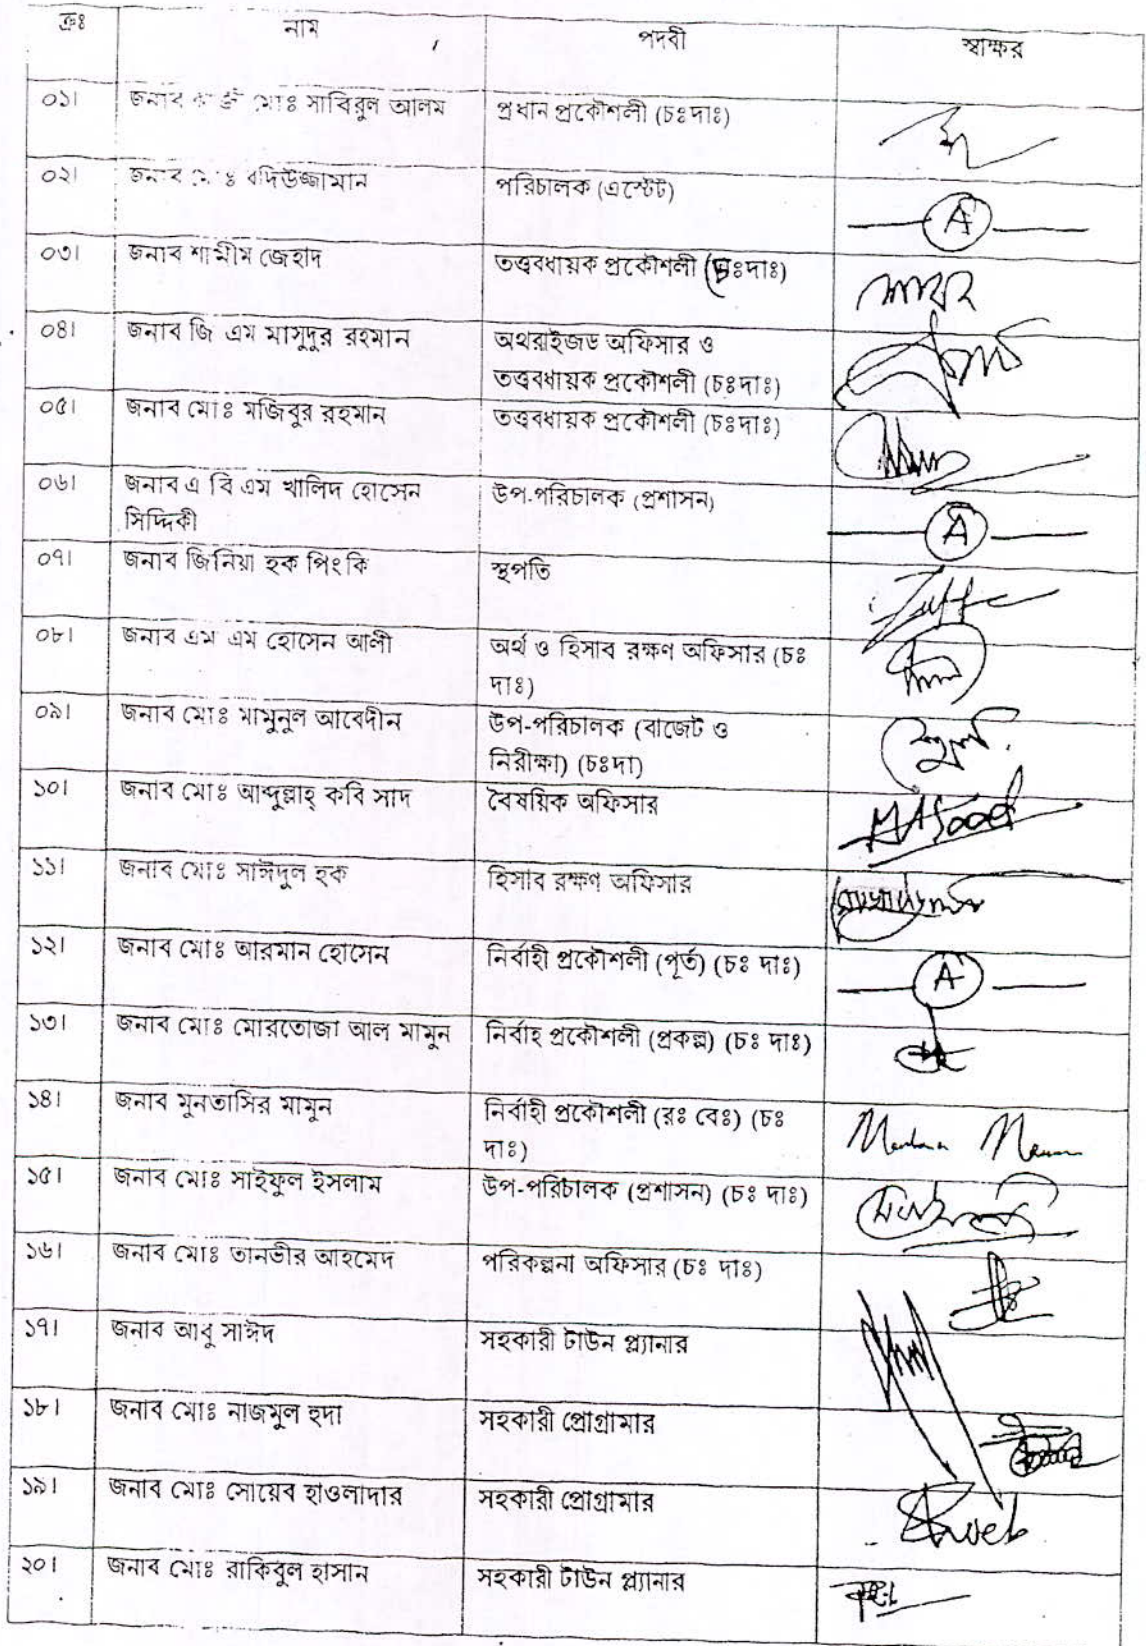 ক্রঃ নাম পদবী স্বাক্ষর
০১। জনাব মোঃ সাবিরুল আলম প্রধান প্রকৌশলী (চঃদাঃ)
০২। জনাব মোঃ বদিউজ্জামান পরিচালক (এস্টেট) A
০৩। জনাব শামীম জেহাদ তত্ত্ববধায়ক প্রকৌশলী (চঃদাঃ)
০৪। জনাব জি এম মাসুদুর রহমান অথরাইজড অফিসার ও
তত্ত্ববধায়ক প্রকৌশলী (চঃদাঃ)
০৫। জনাব মোঃ মজিবুর রহমান তত্ত্ববধায়ক প্রকৌশলী (চঃদাঃ)
০৬। জনাব এ বি এম খালিদ হোসেন উপ-পরিচালক (প্রশাসন) A
সিদ্দিকী
০৭। জনাব জিনিয়া হক পিংকি স্থপতি
০৮। জনাব এম এম হোসেন আলী অর্থ ও হিসাব রক্ষণ অফিসার (চঃ
দাঃ)
০৯। জনাব মোঃ মামুনুল আবেদীন উপ-পরিচালক (বাজেট ও
নিরীক্ষা) (চঃদা)
১০। জনাব মোঃ আব্দুল্লাহ্ কবি সাদ বৈষয়িক অফিসার
১১। জনাব মোঃ সাঈদুল হক হিসাব রক্ষণ অফিসার
১২। জনাব মোঃ আরমান হোসেন নির্বাহী প্রকৌশলী (পূর্ত) (চঃ দাঃ) A
১৩। জনাব মোঃ মোরতোজা আল মামুন নির্বাহ প্রকৌশলী (প্রকল্প) (চঃ দাঃ)
১৪। জনাব মুনতাসির মামুন নির্বাহী প্রকৌশলী (রঃ বেঃ) (চঃ
দাঃ)
১৫। জনাব মোঃ সাইফুল ইসলাম উপ-পরিচালক (প্রশাসন) (চঃ দাঃ)
১৬। জনাব মোঃ তানভীর আহমেদ পরিকল্পনা অফিসার (চঃ দাঃ)
১৭। জনাব আবু সাঈদ সহকারী টাউন প্ল্যানার
১৮। জনাব মোঃ নাজমুল হুদা সহকারী প্রোগ্রামার
১৯। জনাব মোঃ সোয়েব হাওলাদার সহকারী প্রোগ্রামার
২০। জনাব মোঃ রাকিবুল হাসান সহকারী টাউন প্ল্যানার